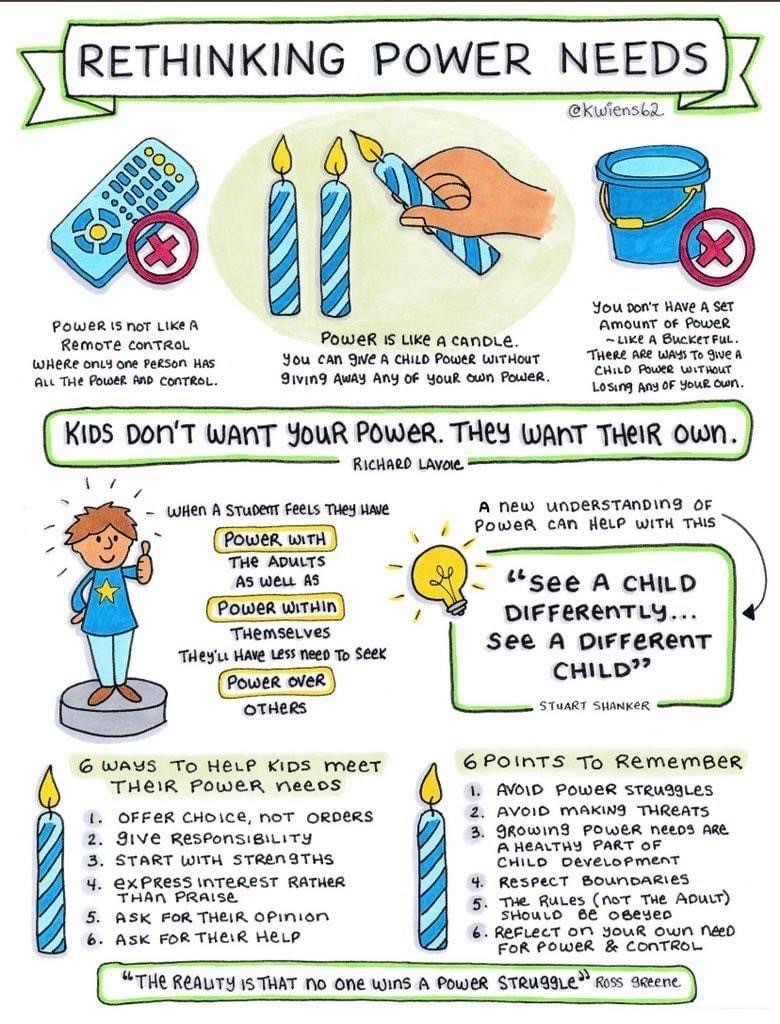 RETHINKING POWER NEEDS
@kwiens62
POWER IS NOT LIKE A
REMOTE CONTROL
WHERE ONLY ONE PERSON HAS
ALL THE POWER AND CONTROL.
POWER IS LIKE A CANDLE.
YOU CAN GIVE A CHILD POWER WITHOUT
GIVING AWAY ANY OF YOUR OWN POWER.
YOU DON'T HAVE A SET
AMOUNT OF POWER
~ LIKE A BUCKET FUL.
THERE ARE WAYS TO GIVE A
CHILD POWER WITHOUT
LOSING ANY OF YOUR OWN.
KIDS DON'T WANT YOUR POWER. THEY WANT THEIR OWN.
RICHARD LAVOIE
WHEN A STUDENT FEELS THEY HAVE
POWER WITH
THE ADULTS
AS WELL AS
POWER WITHIN
THEMSELVES
THEY'LL HAVE LESS NEED TO SEEK
POWER OVER
OTHERS
A NEW UNDERSTANDING OF
POWER CAN HELP WITH THIS
"SEE A CHILD
DIFFERENTLY...
SEE A DIFFERENT
CHILD"
STUART SHANKER
6 WAYS TO HELP KIDS MEET
THEIR POWER NEEDS
1. OFFER CHOICE, NOT ORDERS
2. GIVE RESPONSIBILITY
3. START WITH STRENGTHS
4. EXPRESS INTEREST RATHER
THAN PRAISE
5. ASK FOR THEIR OPINION
6. ASK FOR THEIR HELP
6 POINTS TO REMEMBER
1. AVOID POWER STRUGGLES
2. AVOID MAKING THREATS
3. GROWING POWER NEEDS ARE
A HEALTHY PART OF
CHILD DEVELOPMENT
4. RESPECT BOUNDARIES
5. THE RULES (NOT THE ADULT)
SHOULD BE OBEYED
6. REFLECT ON YOUR OWN NEED
FOR POWER & CONTROL
"THE REALITY IS THAT NO ONE WINS A POWER STRUGGLE" ROSS GREENE